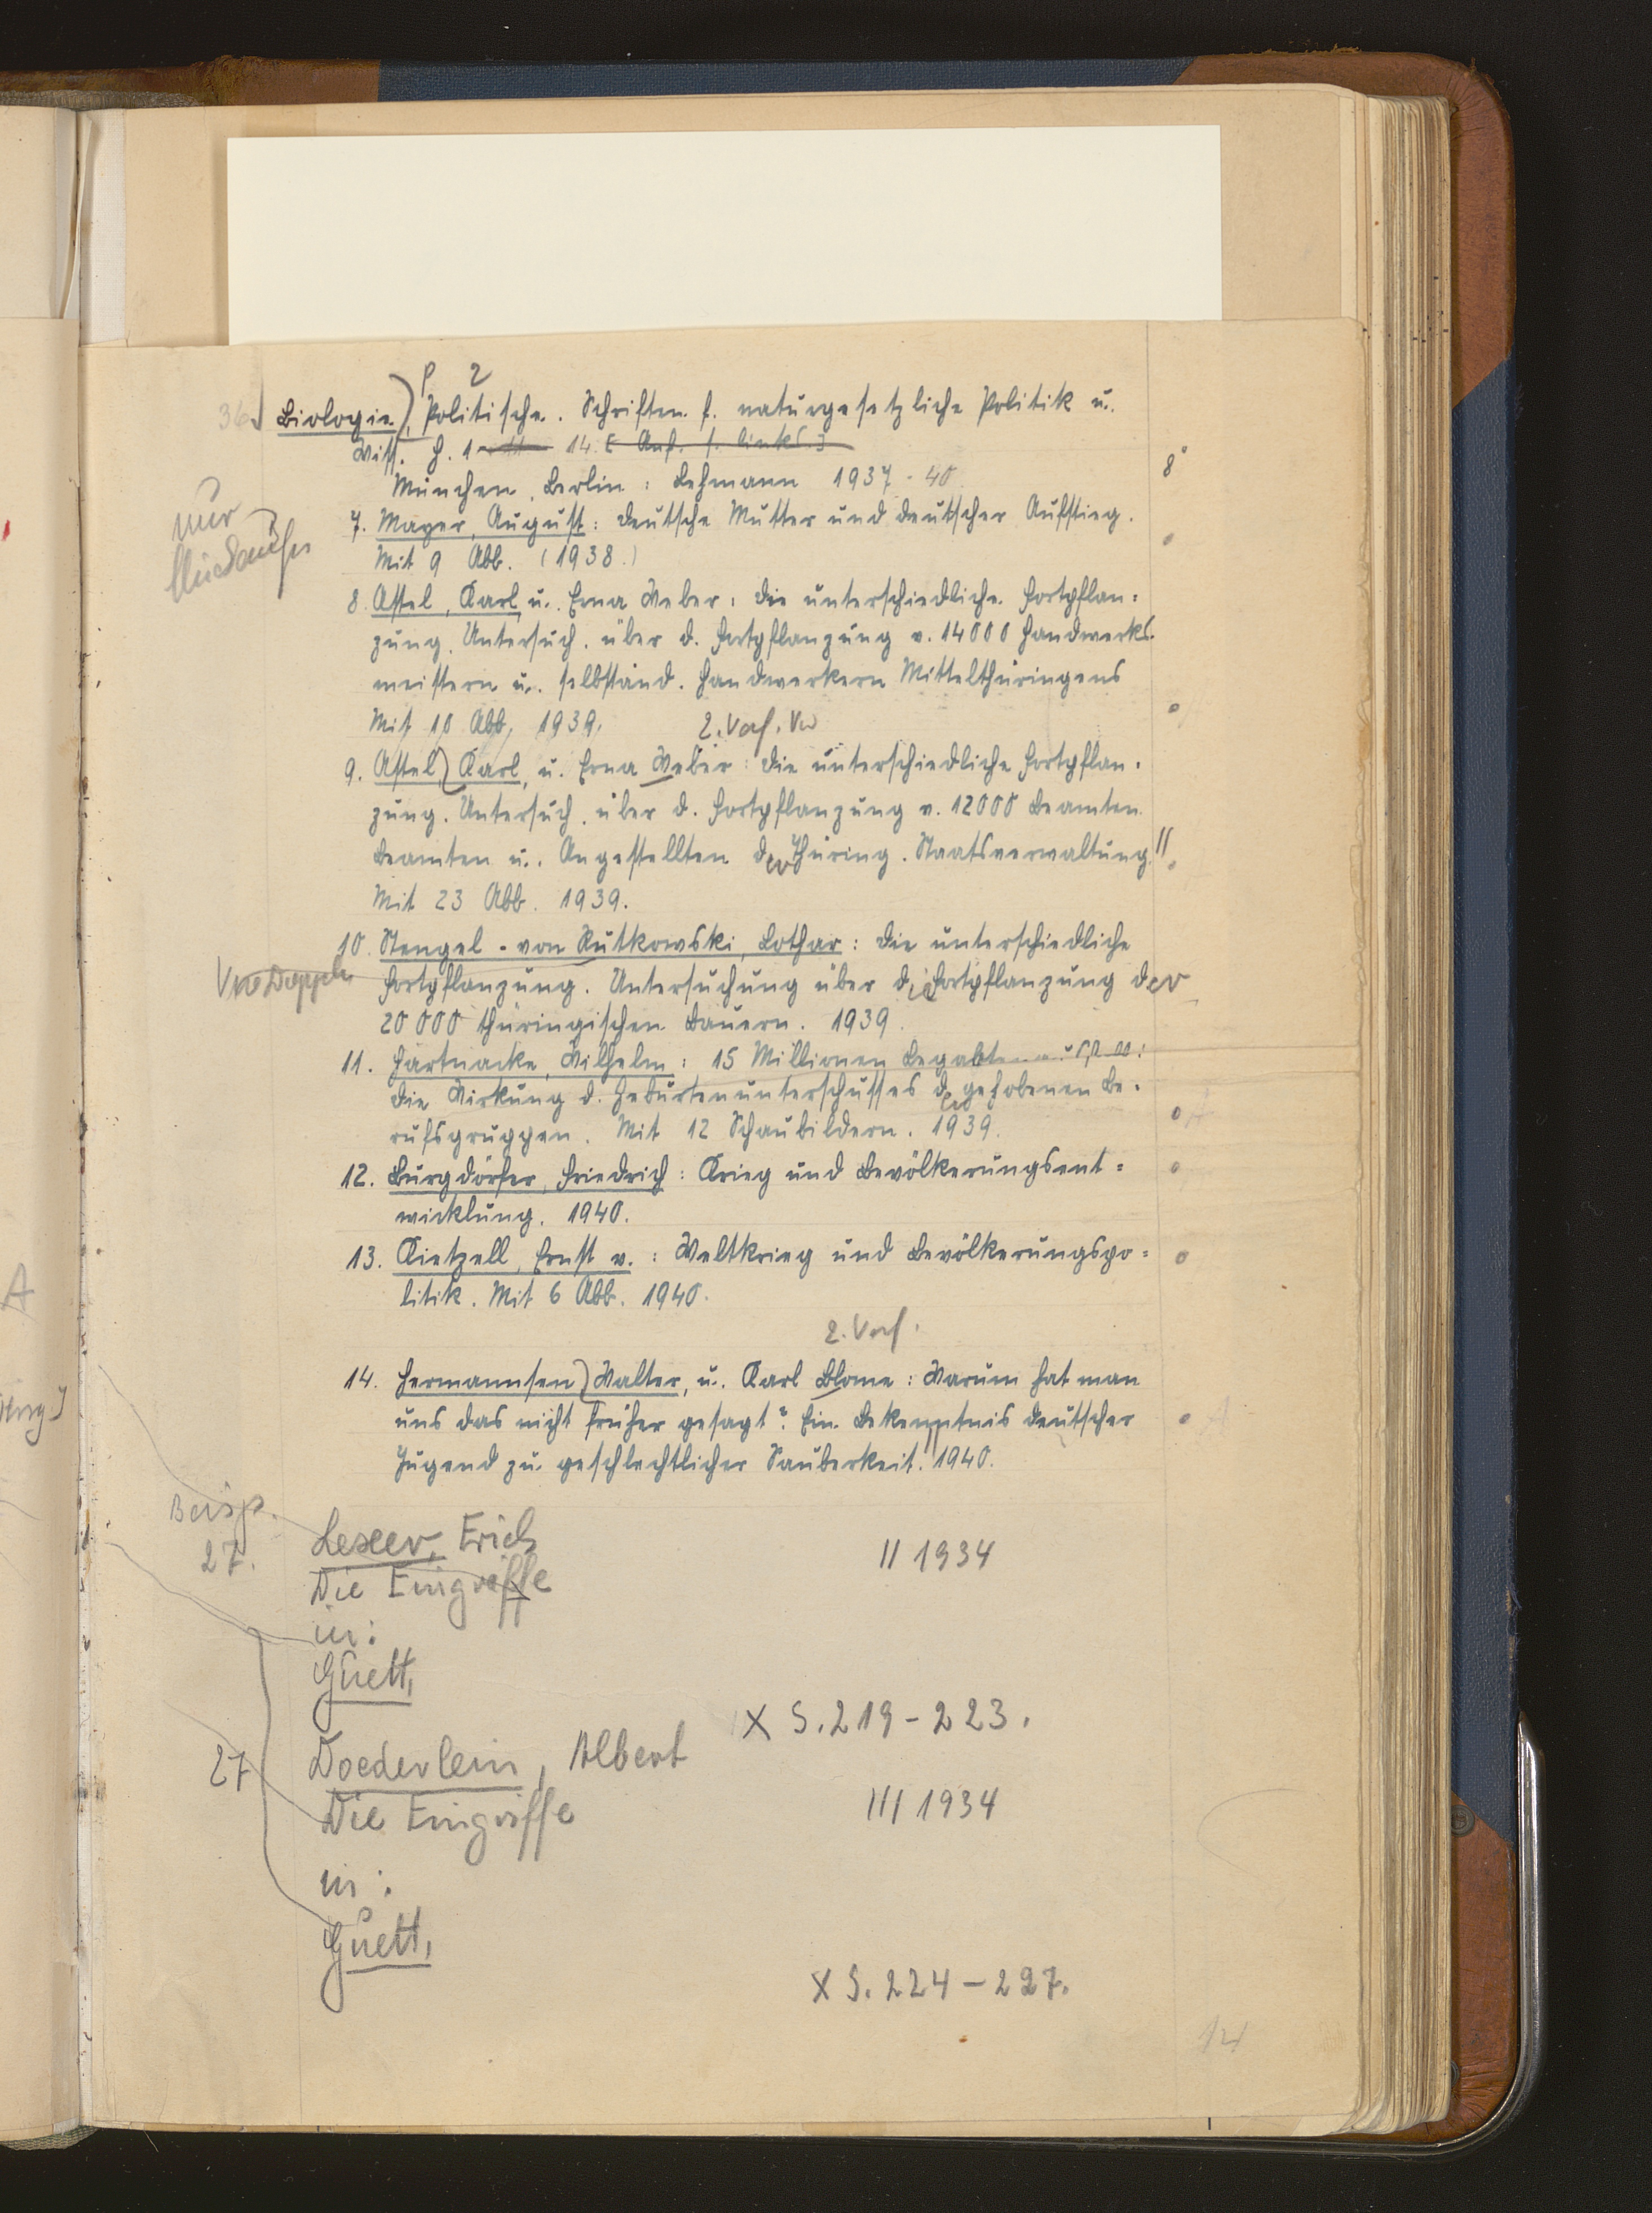 p 2
36. Biologie), Politische. Schriften f. naturgesetzliche Politik u.
Wiss. H. 1 - 11 14 [Anf. s. links.]
8°
München, Berlin: Lehmann 1937 - 40
nur
7. Mayer, August: Deutsche Mutter und deutscher Aufstieg.
Mit 9 Abb. (1938.)
8. Astel, Karl, u. Erna Weber: Die unterschiedliche Fortpflan=
zung. Untersuch. über d. Fortpflanzung v. 14000 Handwerks
meistern u. selbständ. Handwerkern Mittelthüringens
Mit 10 Abb, 1939. 2. Verf. Vw
9. Astel) Karl, u. Erna Weber: Die unterschiedliche Fortpflan=
zung. Untersuch. über d. Fortpflanzung v. 12000 Beamten
Beamten u. Angestellten der Thüring. Staatsverwaltung. //
Mit 23 Abb. 1939.
10. Stengel - von Rutkowski, Lothar: Die unterschiedliche
Fortpflanzung. Untersuchung über die Fortpflanzung der
20 000 thüringischen Bauern. 1939.
11. Hartnacke, Wilhelm: 15 Millionen Begabtenausfall!
Die Wirkung d. Geburtenunterschusses der gehobenen Be=
rufsgruppen. Mit 12 Schaubildern. 1939.
A
12. Burgdörfer, Friedrich: Krieg und Bevölkerungsent=
wicklung. 1940.
13. Kietzell, Ernst v.: Weltkrieg und Bevölkerungspo=
litik. Mit 6 Abb. 1940.
A
2. Verf.
14. Hermannsen) Walter, u. Karl Blome: Warum hat man
uns das nicht früher gesagt? Ein Bekenntnis deutscher
A
Jugend zu geschlechtlicher Sauberkeit. 1940.
Beisp.
27.
Lexer, Erich
II 1934
Die Eingriffe
in:
Guett,
X S. 219 - 223.
27
Doederlein, Albert
III 1934
Die Eingriffe
in:
Guett,
X S. 224 - 227.
14